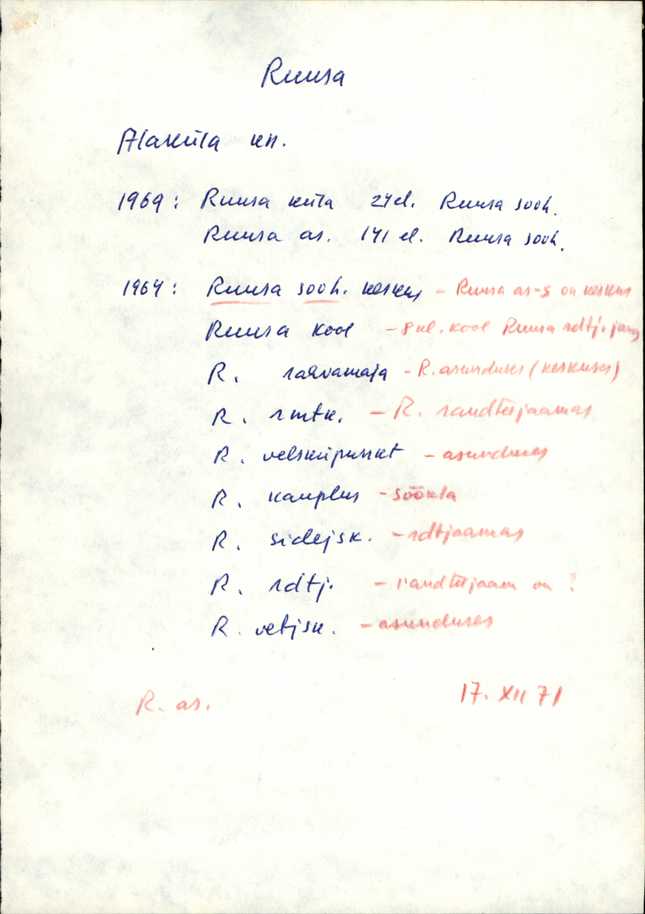 Ruusa
Alaküla kn.
1969: Ruusa küla 24 el. Ruusa sovh.
Ruusa as. 141 el. Ruusa sovh.
1964: Ruusa sovh. keskus - Ruusa as-s on keskus
Ruusa kool - 8 kl. kool Ruusa rdtj. jaam
R. rahvamaja - R. asunduses (keskuses)
R. rmtk. - R. raudteejaamas
R. velskripunkt - asunduses
R. kauplus - söökla
R. sidejsk. - rdtjaamas
R. rdtj. - raudteejaam on ?
R. vetjsk. - asunduses
R. as. 17. XII 71